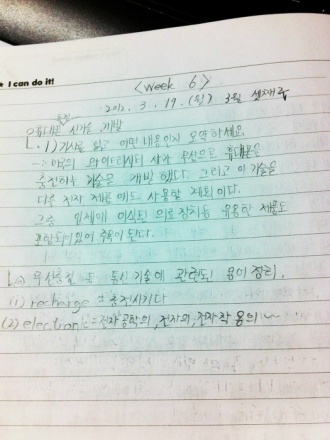 I can do it!
<week 6>
2012. 3. 19. (월) 3월 셋째주
충전
휴대폰 신기술 개발
1) 기사를 읽고 어떤 내용인지 요약하세요.
미국의 와이트리시티 사가 무선으로 휴대폰을
충전하는 기술을 개발 했다. 그리고 이 기술을
다른 전자 제품에도 사용할 계획이다.
그중 인체에 이식된 의료장치등 유용한 제품도
포함되어있어 주목이 된다.
무선충전 등 통신 기술에 관련된 용어 정리.
(1) recharge = 충전시키다
(2) electronic = 전자공학의, 전자의, 전자작용의